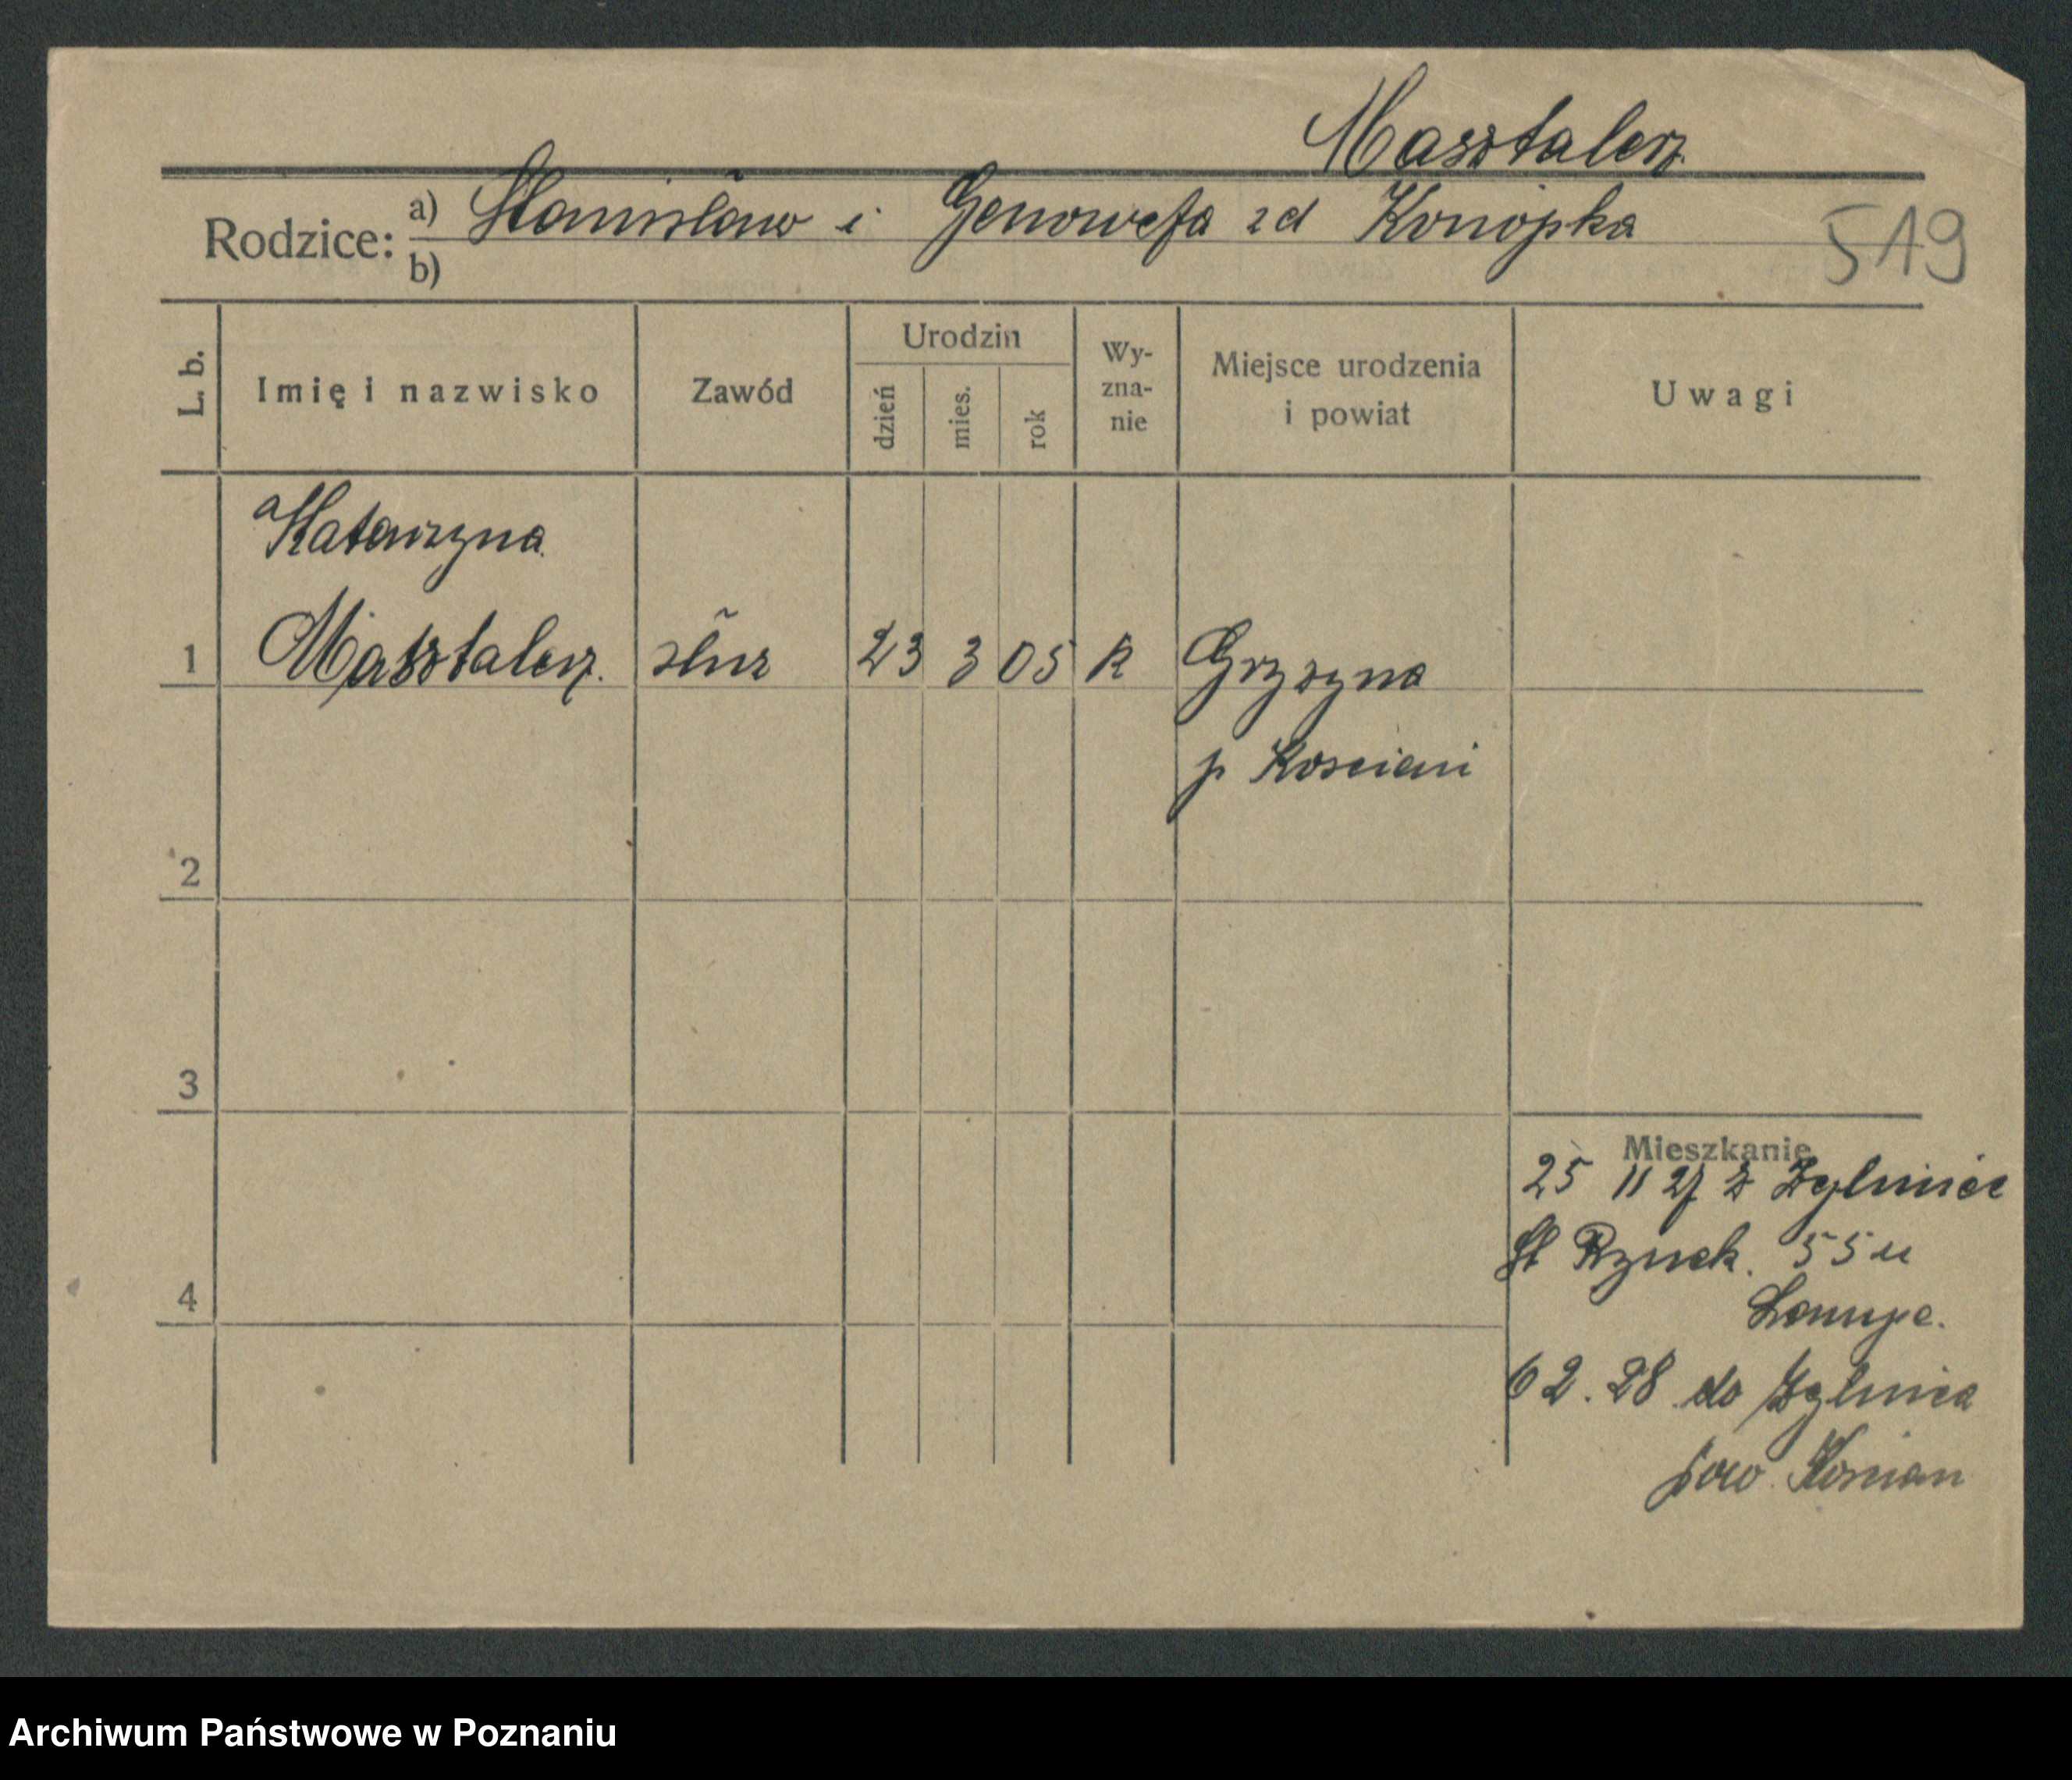 Masztalerz
Rodzice: a) Stanisław i Genowefa zd Konopka
b)
519
L. b.
Imię i nazwisko
Zawód
Urodzin
dzień
mies.
rok
Wy-
zna-
nie
Miejsce urodzenia
i powiat
Uwagi
Katarzyna
1 Masztalerz. służ 23 3 05 K Gryzyna
p Koscian
2
3
Mieszkanie
25 11 27 z
St Rynek. 55 u
4
62.28 do
pow. Koscian
Archiwum Państwowe w Poznaniu